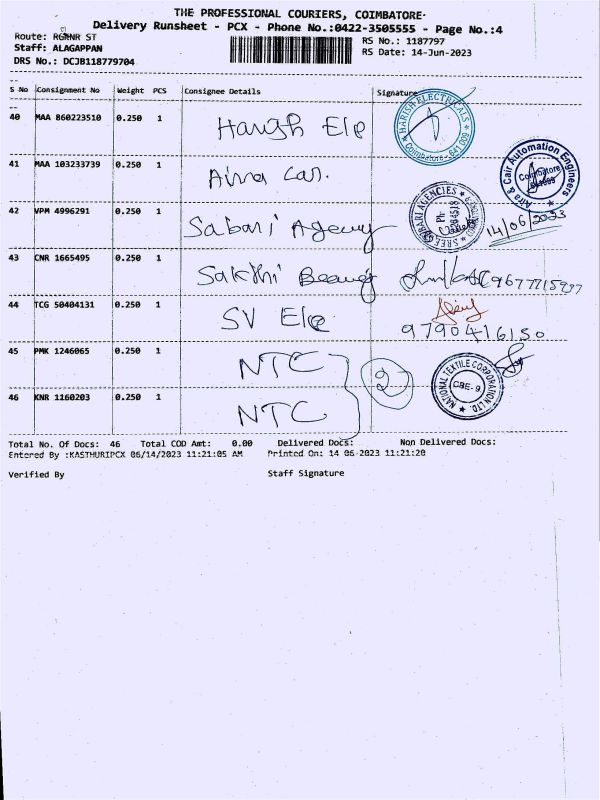 THE PROFESSIONAL COURIERS, COIMBATORE-
Delivery Runsheet - PCX - Phone No.:0422-3505555 - Page No.:4
Route: RGRNR ST
RS No.: 1187797
Staff: ALAGAPPAN
RS Date: 14-Jun-2023
DRS No.: DCJB118779704
S No Consignment No Weight PCS Consignee Details Signature
40 MAA 860223510 0.250 1 Harish Ele
HARISH ELECTRICALS
Coimbatore - 641 009
41 MAA 103233739 0.250 1 Aira Cair.
Aira & Cair Automation Engineers
Coimbatore
42 VPM 4996291 0.250 1 Sabari Agency
SREE SABARI AGENCIES
Ph:
14/06/2023
43 CNR 1665495 0.250 1 Sakthi
44 TCG 50404131 0.250 1 SV Ele
9790416150
45 PMK 1246065 0.250 1 NTC
2
NATIONAL TEXTILE CORPORATION LTD.
CBE-9.
46 KNR 1160203 0.250 1 NTC
Total No. Of Docs: 46 Total COD Amt: 0.00 Delivered Docs: Non Delivered Docs:
Entered By :KASTHURIPCX 06/14/2023 11:21:05 AM Printed On: 14 06-2023 11:21:20
Verified By Staff Signature